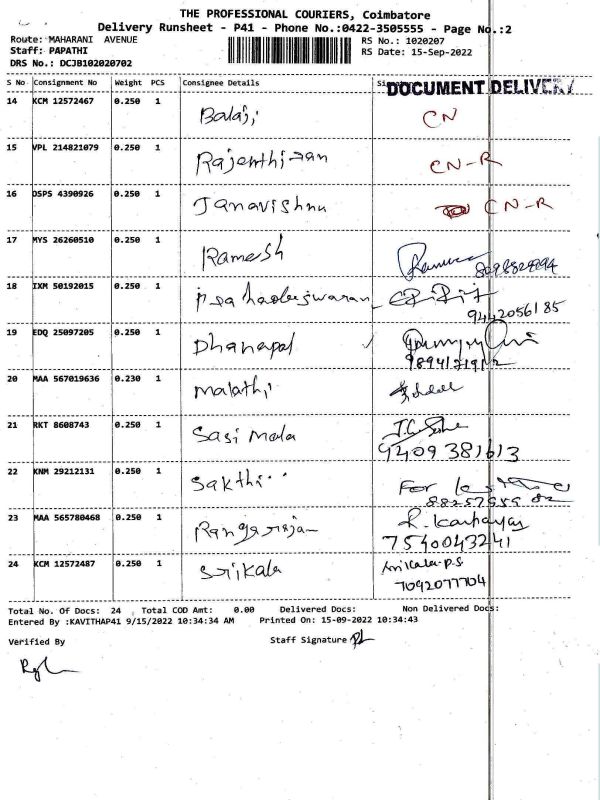 THE PROFESSIONAL COURIERS, Coimbatore
Delivery Runsheet - P41 - Phone No.:0422-3505555 - Page No.:2
Route: MAHARANI AVENUE
Staff: PAPATHI
DRS No.: DCJB102020702
RS No.: 1020207
RS Date: 15-Sep-2022
S No Consignment No Weight PCS Consignee Details
DOCUMENT DELIVERY
14 KCM 12572467 0.250 1 Balaji CN
15 VPL 214821079 0.250 1 Rajenthiran CN-R
16 DSPS 4390926 0.250 1 Janavishnu CN-R
17 MYS 26260510 0.250 1 Ramesh
18 IXM 50192015 0.250 1
9442056185
19 EDQ 25097205 0.250 1 Dhanapal
20 MAA 567019636 0.230 1 Malathi
21 RKT 8608743 0.250 1 Sasi Mala
9409381613
22 KNM 29212131 0.250 1 Sakthi For
23 MAA 565780468 0.250 1 Rangarajan
7540043241
24 KCM 12572487 0.250 1 Srikala Srikala.P.S
7092077704
Total No. Of Docs: 24 Total COD Amt: 0.00 Delivered Docs: Non Delivered Docs:
Entered By :KAVITHAP41 9/15/2022 10:34:34 AM Printed On: 15-09-2022 10:34:43
Verified By Staff Signature